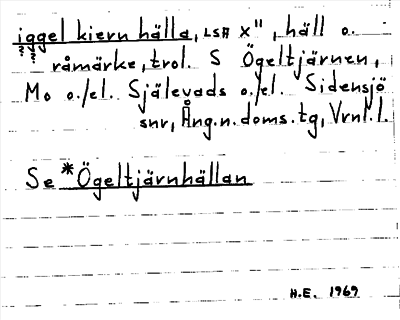 iggel kiern hälla, LSA X", häll o.
? ? råmärke, trol. S Ögeltjärnen,
Mo o./el. Själevads o./el. Sidensjö
snr, Ång.n.doms.tg, Vrnl.l.
Se *Ögeltjärnhällan
H.E. 1969